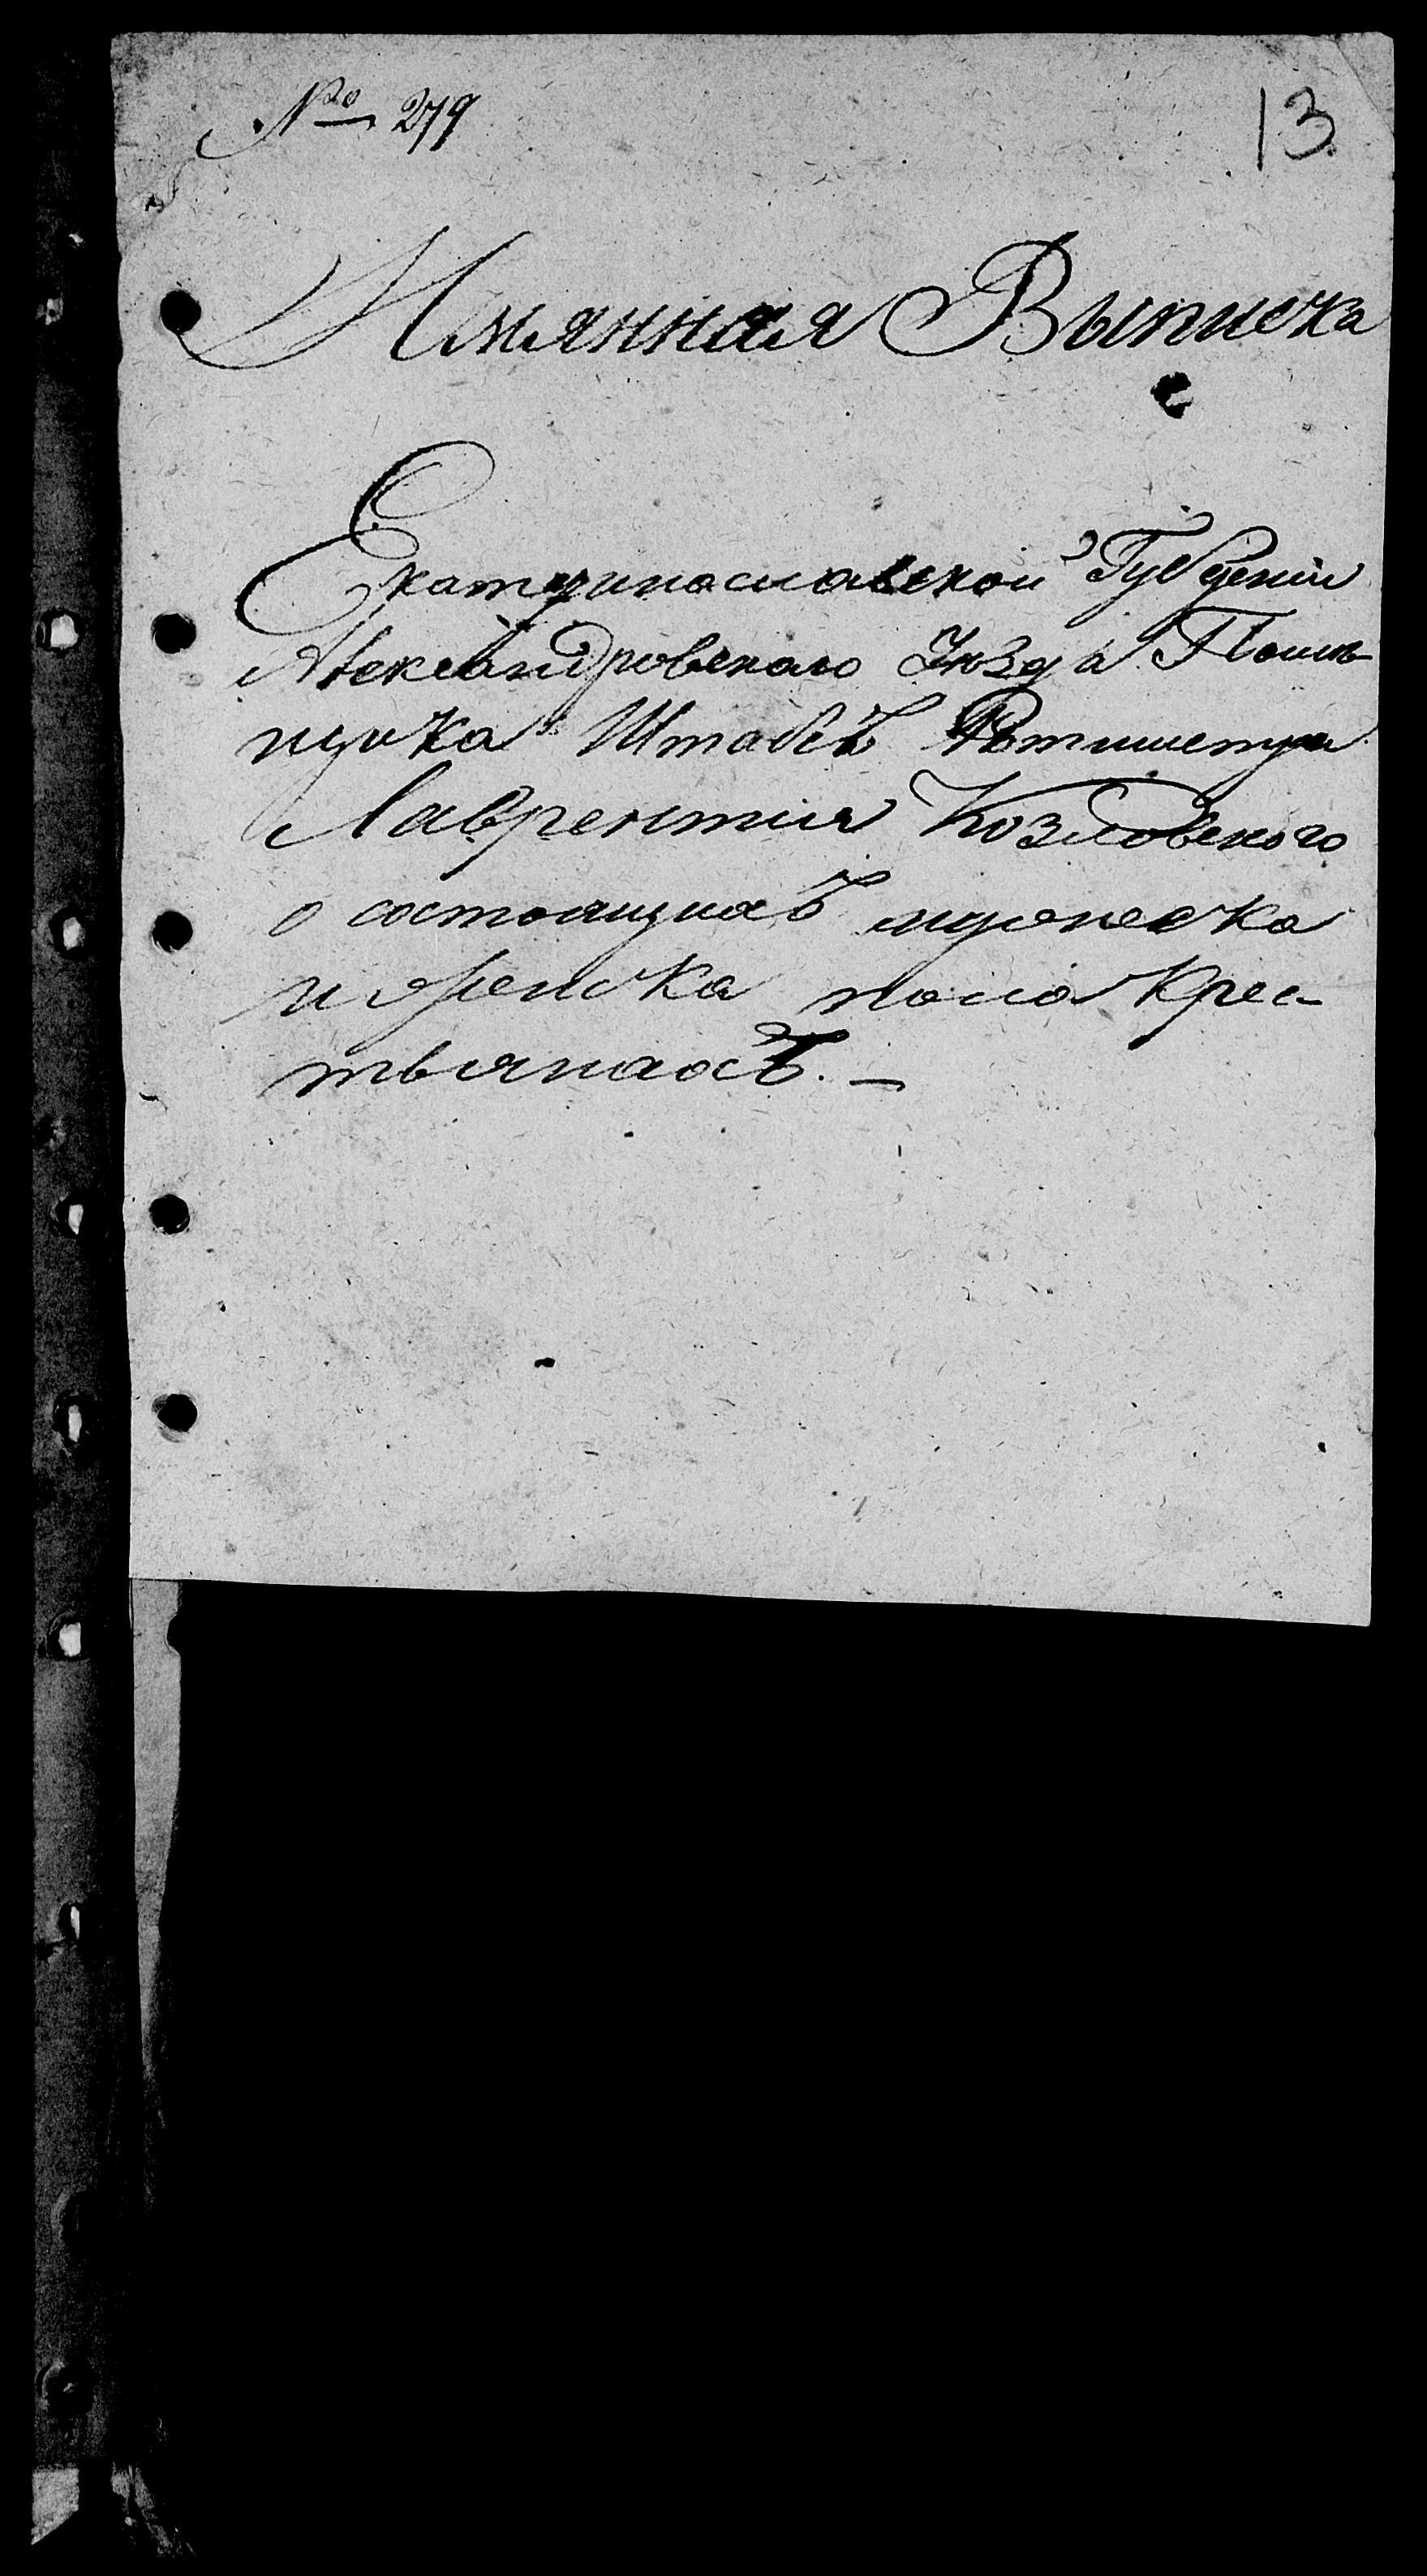 № 279
13
Имянная Выписка
Екатеринославской Губернии
Александровского Уезда Помѣ-
щика Штабсъ Ротмистра
Лаврентия Козловского
о состоящихъ мужеска
и женска пола Крес-
тьянахъ. —